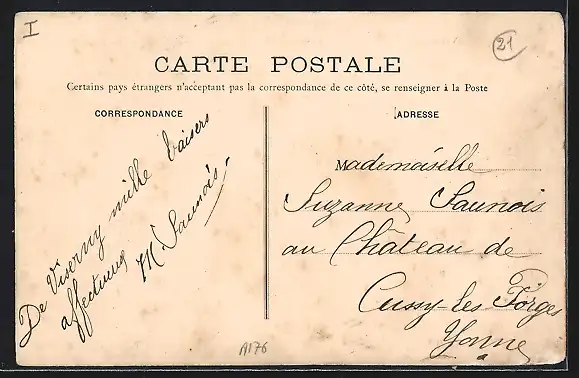 I
21
CARTE POSTALE
Certains pays étrangers n'acceptant pas la correspondance de ce côté, se renseigner à la Poste
CORRESPONDANCE
ADRESSE
De Viserny mille baisers
affectueux
M. Saunois
Mademoiselle
Suzanne Saunois
au Château de
Cussy les Forges
Yonne
A176